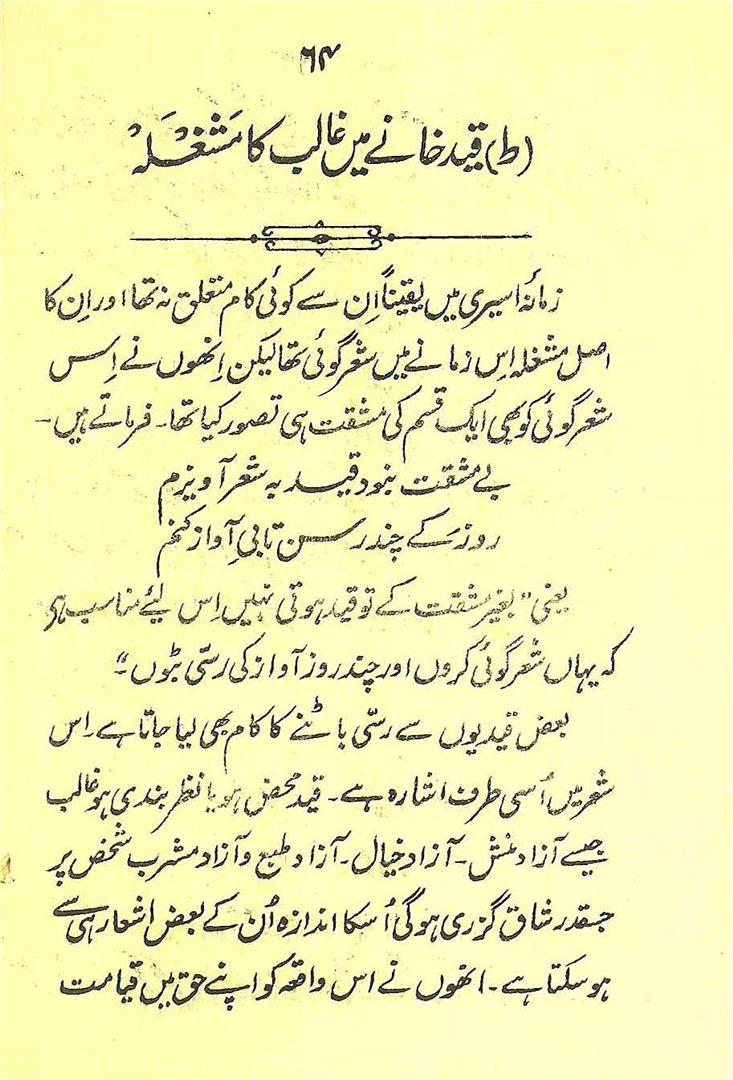 ۶۴
(ط) قید خانے میں غالب کا مَشْغَلَہْ
زمانۂ اسیری میں یقیناً اِن سے کوئی کام متعلق نہ تھا اور اِن کا
اصل مشغلہ اِس زمانے میں شعر گوئی تھا لیکن اِنھوں نے اِس
شعر گوئی کو بھی ایک قسم کی مشقت ہی تصور کیا تھا۔ فرماتے ہیں۔
بے مشقت نبود قید بہ شعر آویزم
روزکے چند رسن تابیِ آواز کنم
یعنی "بغیر مشقت کے تو قید ہوتی نہیں اِس لیٔے مناسب ہی
کہ یہاں شعر گوئی کروں اور چند روز آواز کی رسّی بٹوں"۔
بعض قیدیوں سے رسّی باٹنے کا کام بھی لیا جاتا ہے۔ اِس
شعر میں اُسی طرف اشارہ ہے۔ قید محض ہو یا نظر بندی ہو غالب
جیسے آزاد منش۔ آزاد خیال۔ آزاد طبع و آزاد مشرب شخص پر
جسقدر شاق گزری ہوگی اُسکا اندازہ اُن کے بعض اشعار ہی سے
ہوسکتا ہے۔ انھوں نے اس واقعہ کو اپنے حق میں قیامت